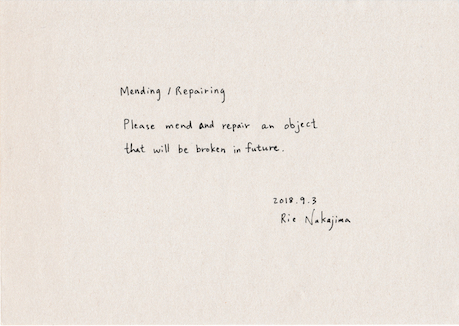 Mending / Repairing
Please mend and repair an object
that will be broken in future.
2018.9.3
Rie Nakajima